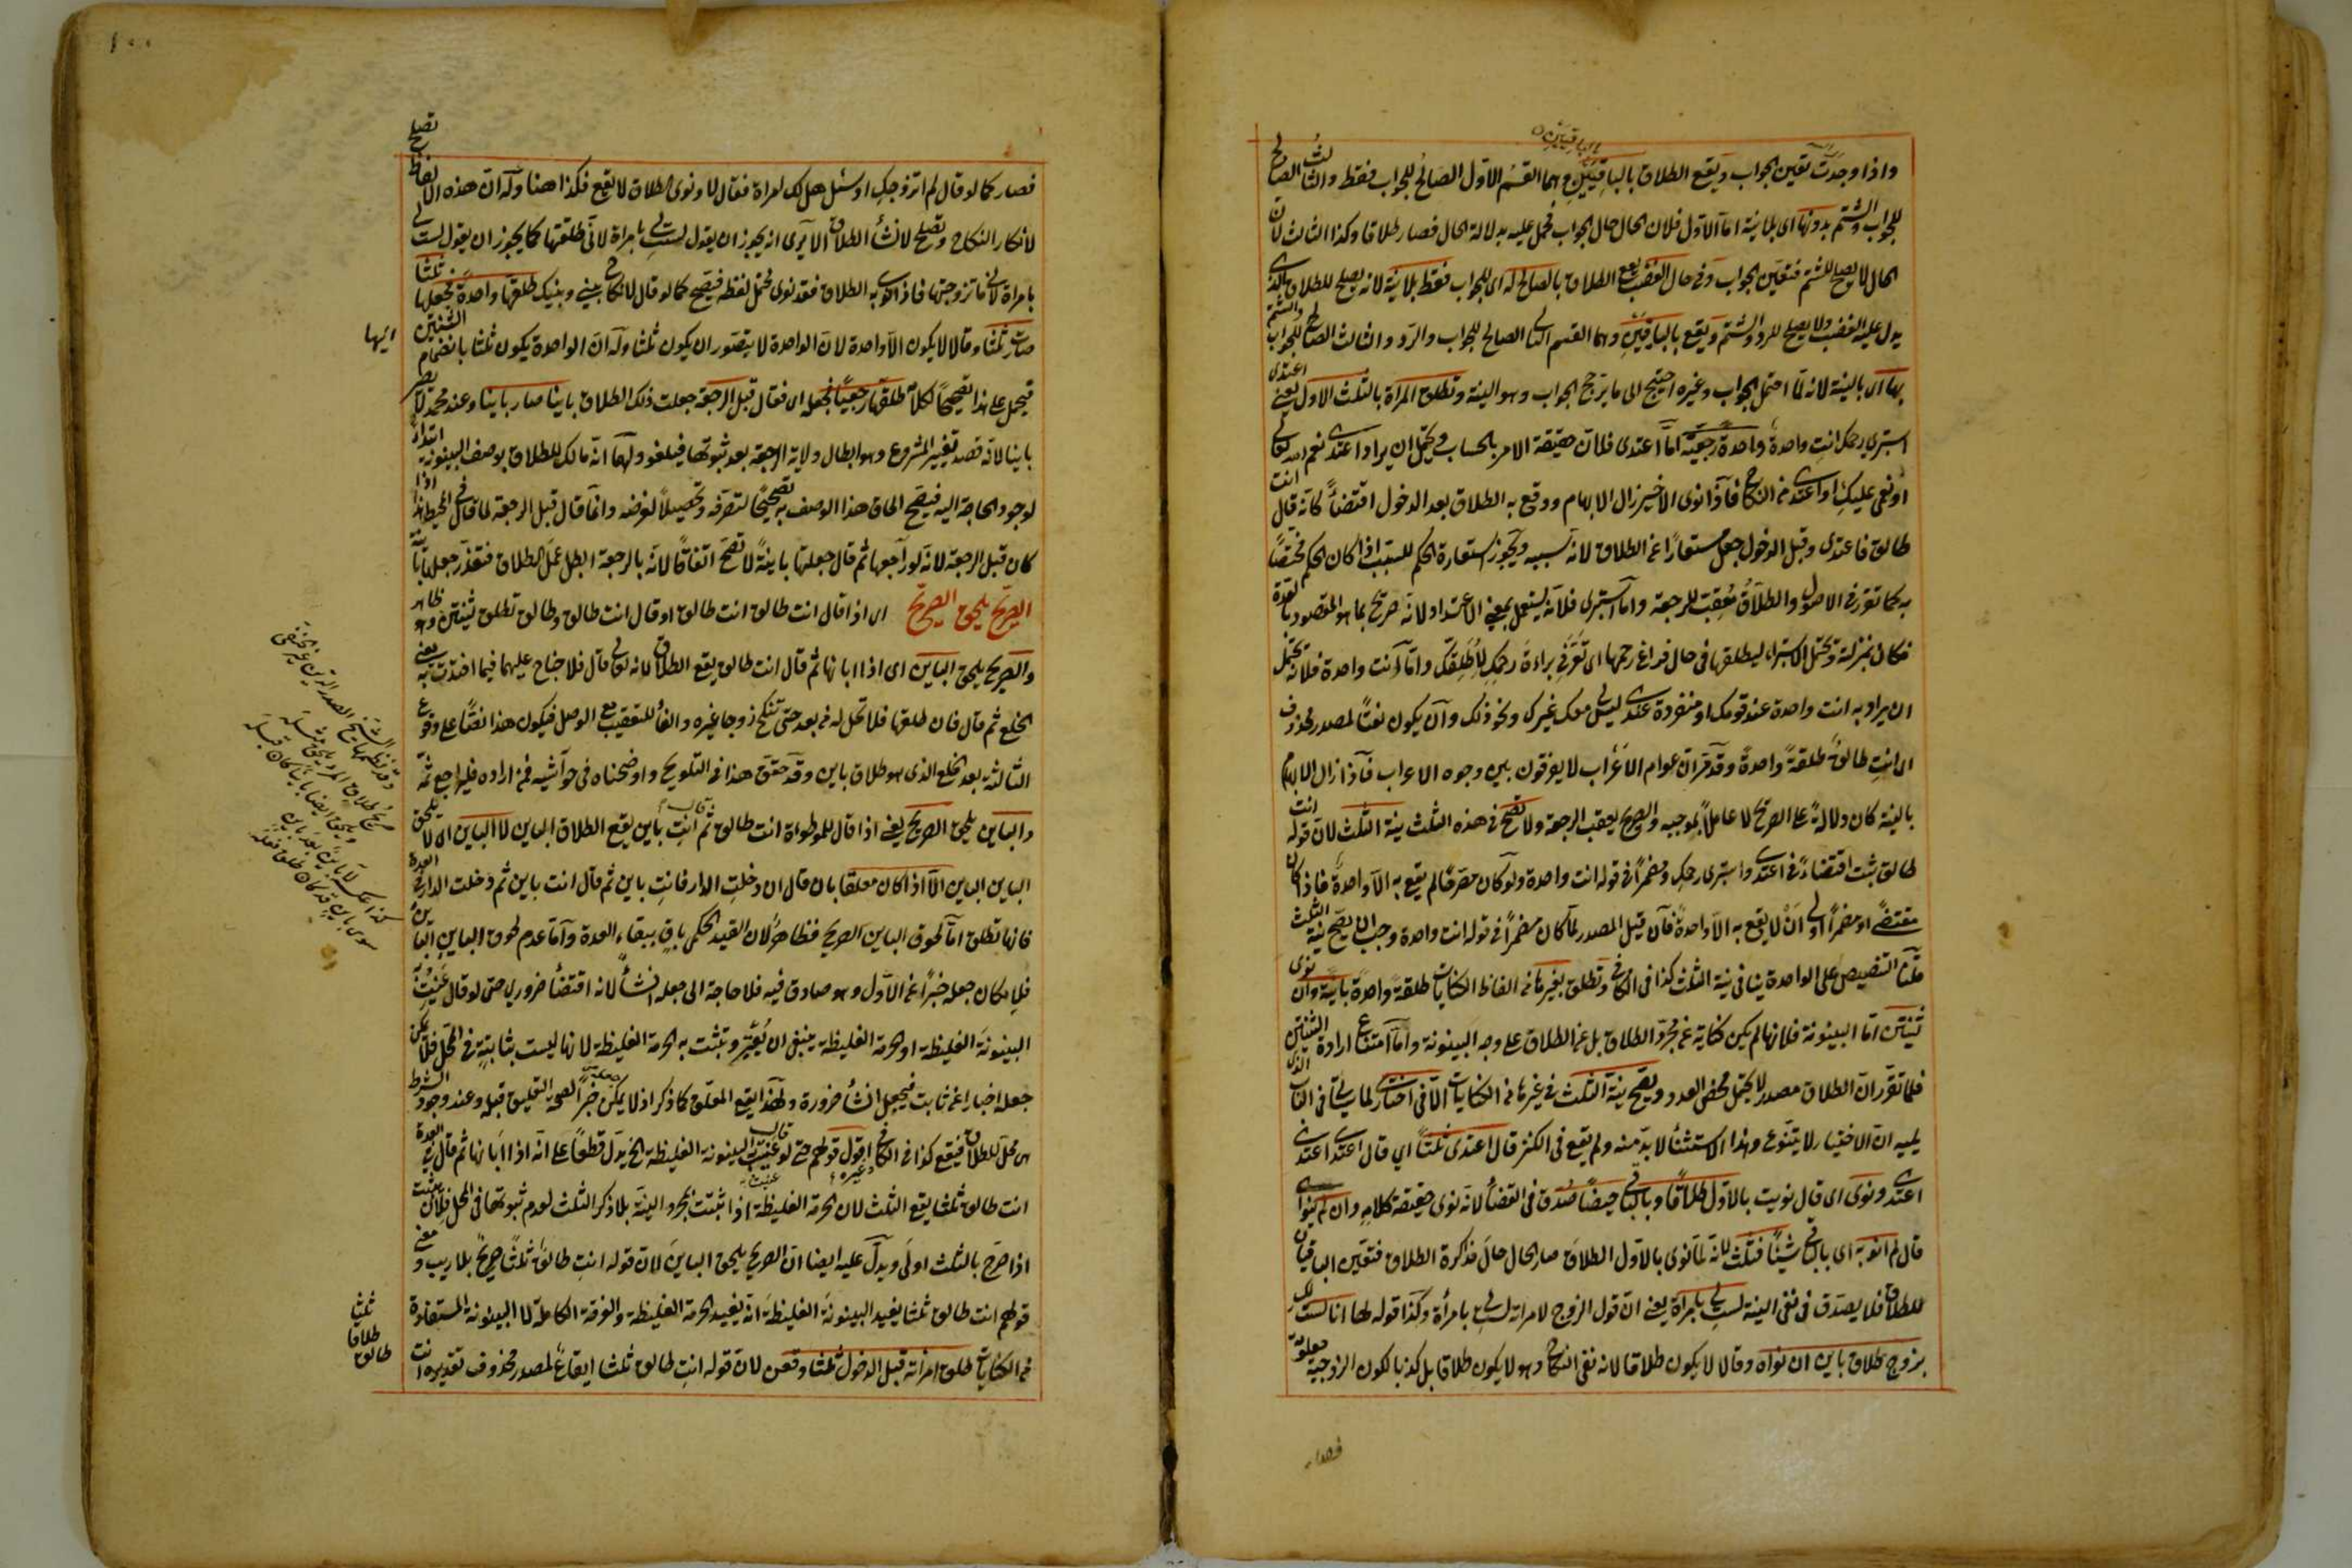 واذا وجدت تعين الجواب ويقع الطلاق بالباقيين وهما القسم الاول الصالح للجواب فقط والثالث الصالح
للجواب والشتم بدونها اى بلا نية اما الاول فلان الحال حال الجواب فحمل عليه بدلالة الحال فصار طلاقا وكذا الثالث لان
الحال لا يصلح للشتم فتعين الجواب وفى حال الغضب يقع الطلاق بالصالح له اى للجواب فقط بلا نية لانه يصلح للطلاق الذى
يدل عليه الغضب ولا يصلح للرد والشتم ويقع بالباقيين وهما القسم الثانى الصالح للجواب والرد والثالث الصالح للجواب والشتم
بها اى بالنية لانه لما احتمل الجواب وغيره احتيج الى ما يرجح الجواب وهو النية وتطلق المرأة بالثلث الاول يعنى اعتدى
استبرى رحمك انت واحدة واحدة رجعية اما اعتدى فلان حقيقة الامر بالحساب ويحتمل ان يراد اعتدى نعم الله تعالى
او نعمى عليك او اعتدى من النكاح فاذا نوى الاخير زال الابهام ووقع به الطلاق بعد الدخول اقتضاء كانه قال انت
طالق فاعتدى وقبل الدخول جعل مستعارا عن الطلاق لانه سببه ويجوز استعارة الحكم للسبب اذا كان الحكم مختصا
به كما تقرر فى الاصول والطلاق معقب للرجعة واما استبرى فلانه يستعمل بمعنى الاعتداد لانه صريح بما هو المقصود بالعدة
فكان بمنزلته ويحتمل الاستبراء ليطلقها فى حال فراغ رحمها اى تعرفى براءة رحمك لاطلقك واما انت واحدة فلانه يحتمل
ان يراد به انت واحدة عند قومك او منفردة عندى ليس معك غيرك ونحو ذلك وان يكون نعتا لمصدر محذوف
اى انت طالق طلقة واحدة وقد مر ان عوام الاعراب لا يفرقون بين وجوه الاعراب فاذا زال الابهام
بالنية كان دلالة على الصريح لا عاملا بموجبه والصريح يعقب الرجعة ولا تصح فى هذه الثلث نية الثلث لان قوله انت
طالق ثبت اقتضاء فى اعتدى واستبرى رحمك ومضمرا فى قوله انت واحدة ولو كان مصرحا لم يقع به الا واحدة فاذا كان
مقتضى او مضمرا اولى ان لا يقع به الا واحدة فان قيل المصدر لما كان مضمرا فى قوله انت واحدة وجب ان يصح نية الثلث
قلنا التنصيص على الواحدة ينافى نية الثلث كذا فى الكافى وتطلق بغيرها من الفاظ الكنايات طلقة واحدة باينة وان نوى
ثنتين اما البينونة فلانها لم يكن كناية عن مجرد الطلاق بل عن الطلاق على وجه البينونة واما امتناع ارادة الثنتين
فلما تقرر ان الطلاق مصدر لا يحتمل محض العدد ويصح نية الثلث فى غيرها من الكنايات الا فى اختارى لما يأتى فى الباب الذى
يليه ان الاختيار لا يتنوع وهذا الاستثناء لابد منه ولم يقع فى الكنز قال اعتدى ثلثا اي قال اعتدى اعتدى
اعتدى ونوى اى قال نويت بالاول طلاقا وبالباقى حيضا صدق فى القضاء لانه نوى حقيقة كلامه وان لم ينو اى
قال لم انو به اى بالباقى شيئا فثلث لانه لما نوى بالاول الطلاق صار الحال حال مذاكرة الطلاق فتعين الباقيان
للطلاق فلا يصدق فى نفى النية لست لى بامرأة يعنى ان قول الزوج لامراته لست لى بامرأة وكذا قوله لها انا لست لك
بزوج طلاق باين ان نواه وقالا لا يكون طلاقا لانه نفى النكاح وهو لا يكون طلاقا بل كذبا لكون الزوجية معلومة
فصار
١٠٠
فصار كما لو قال لم اتزوجك او سئل هل لك امراة فقال لا ونوى الطلاق لا يقع فكذا هنا وله ان هذه الالفاظ تصلح
لانكار النكاح وتصلح لانشاء الطلاق الا يرى انه يجوز ان يقول لست لى بامراة لانى طلقتها كما يجوز ان يقول لست لى
بامراة لانى ما تزوجتها فاذا نوى به الطلاق فقد نوى محتمل لفظه فيصح كما لو قال لا نكاح بينى وبينك طلقها واحدة فجعلها ثلثا
صارت ثلثا وقالا لا يكون الا واحدة لان الواحدة لا يتصور ان يكون ثلثا وله ان الواحدة يكون ثلثا بانضمام الثنتين
اليها
فيحمل على هذا تصحيحا لكلامه طلقها رجعيا فجعله اى فقال قبل الرجعة جعلت ذلك الطلاق باينا صار باينا وعند محمد لا يصير
باينا لانه قصد تغيير المشروع وهو ابطال ولاية الرجعة بعد ثبوتها فيلغو ولهما انه مالك للطلاق بوصف البينونة ابتداء
لوجود الحاجة اليه فيصح الحاق هذا الوصف به تصحيحا لتصرفه وتحصيلا لغرضه وانما قال قبل الرجعة لما قال فى المحيط هذا اذا
كان قبل الرجعة لانه لو راجعها ثم قال جعلتها باينة لا تصح اتفاقا لانه بالرجعة ابطل عمل الطلاق فتعذر جعلها باينا
الصريح يلحق الصريح اى اذا قال انت طالق انت طالق او قال انت طالق وطالق تطلق ثنتين وهو ظاهر
والصريح يلحق الباين اى اذا ابانها ثم قال انت طالق يقع الطلاق لانه تعالى قال فلا جناح عليهما فيما افتدت به يعنى
الخلع ثم قال فان طلقها فلا تحل له من بعد حتى تنكح زوجا غيره والفاء للتعقيب مع الوصل فيكون هذا نصا على وقوع
الثالثة بعد الخلع الذى هو طلاق باين وقد حقق هذا فى التلويح واوضحناه فى حواشيه فمن اراده فليراجع ثمه
والباين يلحق الصريح يعنى اذا قال للموطوأة انت طالق ثم قال انت باين يقع الطلاق الباين لا الباين اى لا يلحق
الباين الباين الا اذا كان معلقا بان قال ان دخلت الدار فانت باين ثم قال انت باين ثم دخلت الدار فى العدة
فانها تطلق اما لحوق الباين الصريح فظاهر لان القيد الحكمى باق ببقاء العدة واما عدم لحوق الباين الباين
فلامكان جعله خبرا عن الاول وهو صادق فيه فلا حاجة الى جعله انشاء لانه اقتضاء ضرورى حتى لو قال عنيت به
البينونة الغليظة او الحرمة الغليظة ينبغى ان يعتبر وتثبت به الحرمة الغليظة لانها ليست بثابتة فى المحل فلا يمكن
جعله اخبارا عن ثابت فيجعل انشاء ضرورة ولهذا يقع المعلق كما ذكر اذ لا يمكن جعله خبرا لصحة التعليق قبله وعند وجود الشرط
هى محل للطلاق فيقع كذا فى الكافى وغيره اقول قولهم حتى لو قال عنيت به البينونة الغليظة الخ يدل قطعا على انه اذا ابانها ثم قال فى العدة
انت طالق ثلثا يقع الثلث لان الحرمة الغليظة اذا ثبتت بمجرد النية بلا ذكر الثلث لعدم ثبوتها فى المحل فلان يثبت
اذا صرح بالثلث اولى ويدل عليه ايضا ان الصريح يلحق الباين لان قوله انت طالق ثلثا صريح بلا ريب ومعنى
قولهم انت طالق ثلثا يفيد البينونة الغليظة انه يفيد الحرمة الغليظة والفرقة الكاملة لا البينونة المستفادة
من الكنايات طلق امراته قبل الدخول ثلثا وقعن لان قوله انت طالق ثلثا ايقاع لمصدر محذوف تقديره انت
طالق طلاقا ثلثا